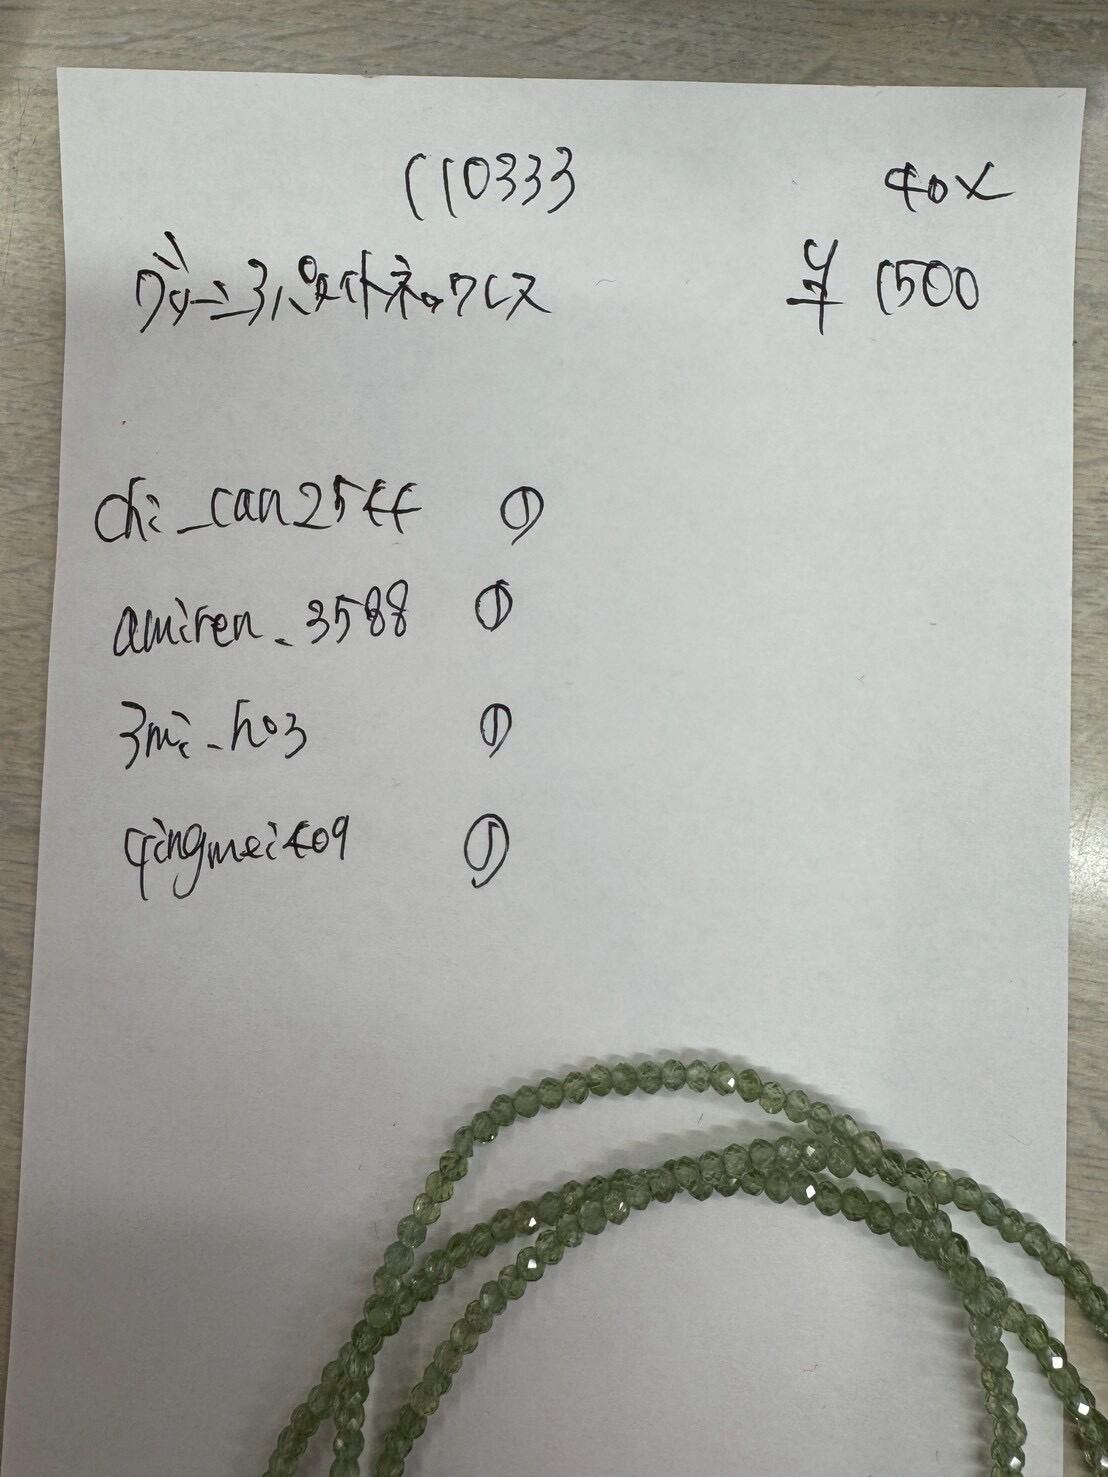 110333 40x
グリーンアパタイトネックレス ¥1500
chi_can2544 ①
amiren_3588 ①
3mi_ho3 ①
qingmei409 ①